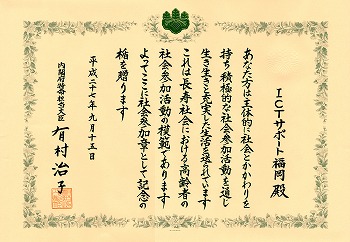 ICTサポート福岡 殿
あなた方は主体的に社会とかかわりを
持ち積極的な社会参加活動を通じ
生き生きと充実した生活を送られています
これは長寿社会における高齢者の
社会参加活動の模範であります
よってここに社会参加章として記念の
楯を贈ります
平成二十七年九月十五日
内閣府特命担当大臣
有村治子